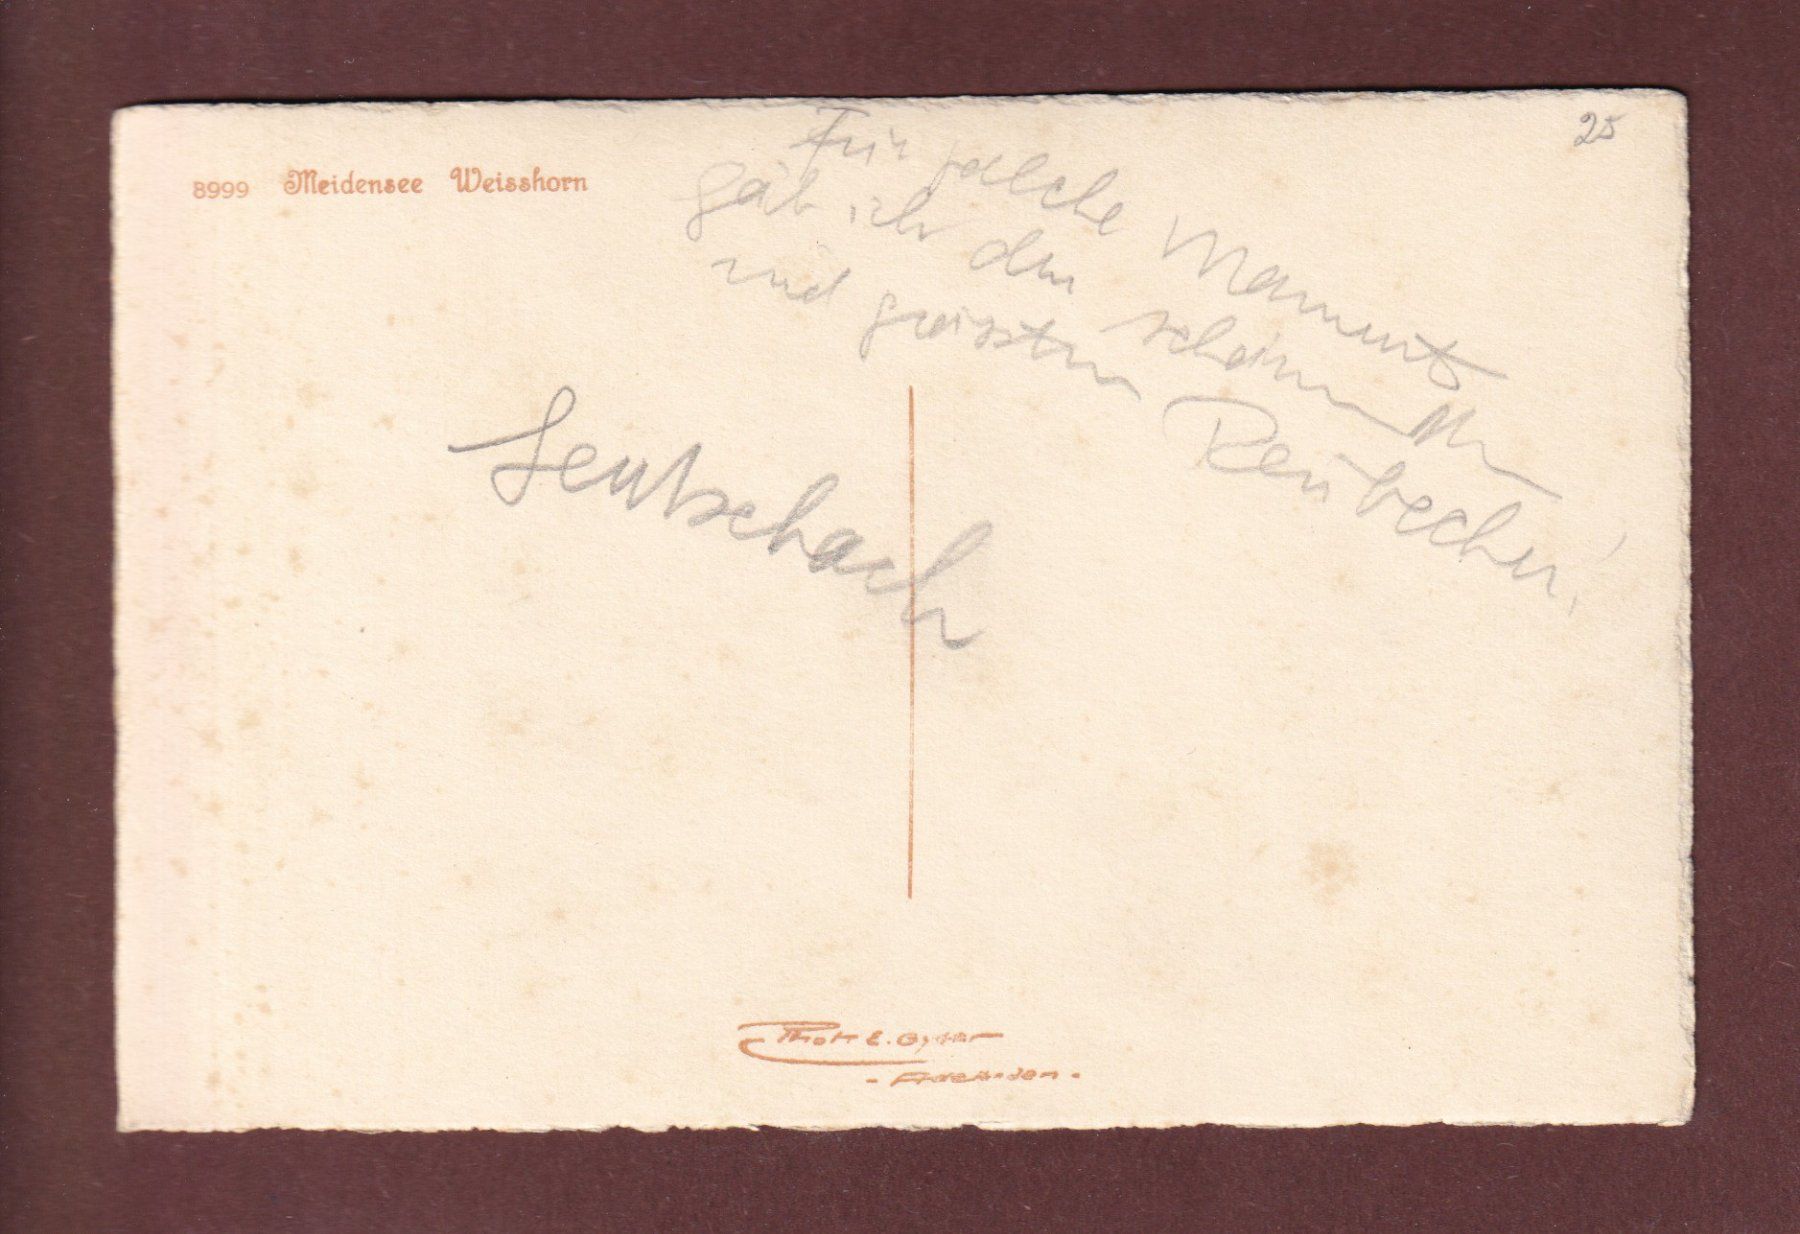 8999 Meidensee Weisshorn
25
Für solche Mammuts
gäb ich den schönsten
und grössten Reubecher!
Leutschach
Phot E. Gyger
- Adelboden -